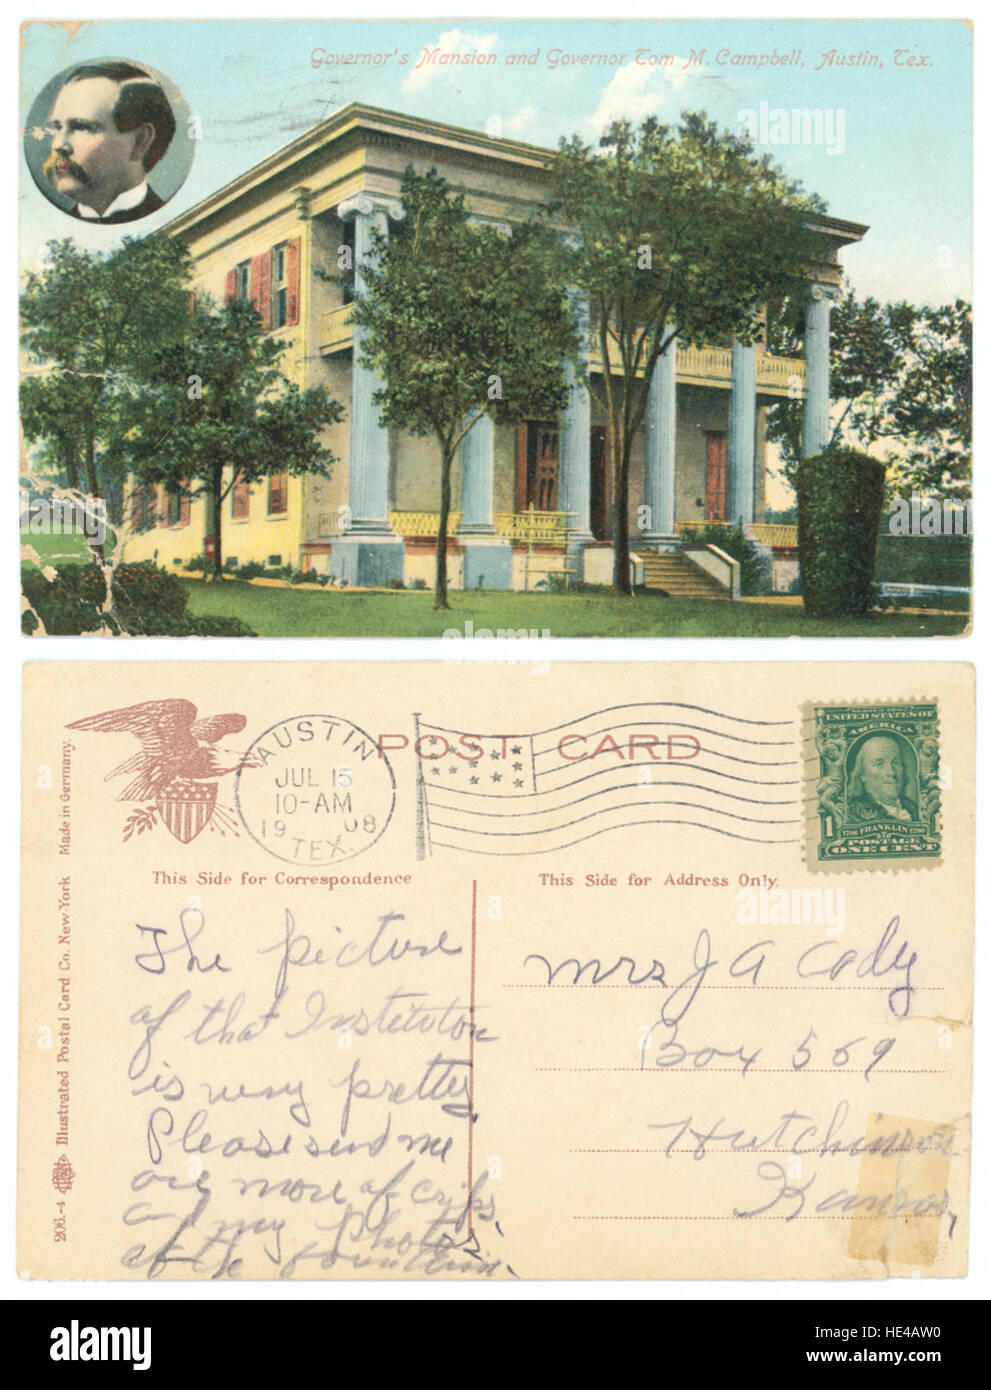 Governor's Mansion and Governor Tom M. Campbell, Austin, Tex.
alamy stock photo
POST CARD
AUSTIN
JUL 15
10-AM
1908
TEX.
SERIES 1902
UNITED STATES OF
AMERICA
1
1706 FRANKLIN 1790
POSTAGE
ONE CENT
This Side for Correspondence
This Side for Address Only.
206.-4 Illustrated Postal Card Co. New-York Made in Germany.
The picture
of that Institution
is very pretty
Please send me
one more of
and my Photos
at the fountain.
Mrs J A Cody
Box 569
Hutchinson
Kansas,
alamy
Image ID: HE4AW0
www.alamy.com